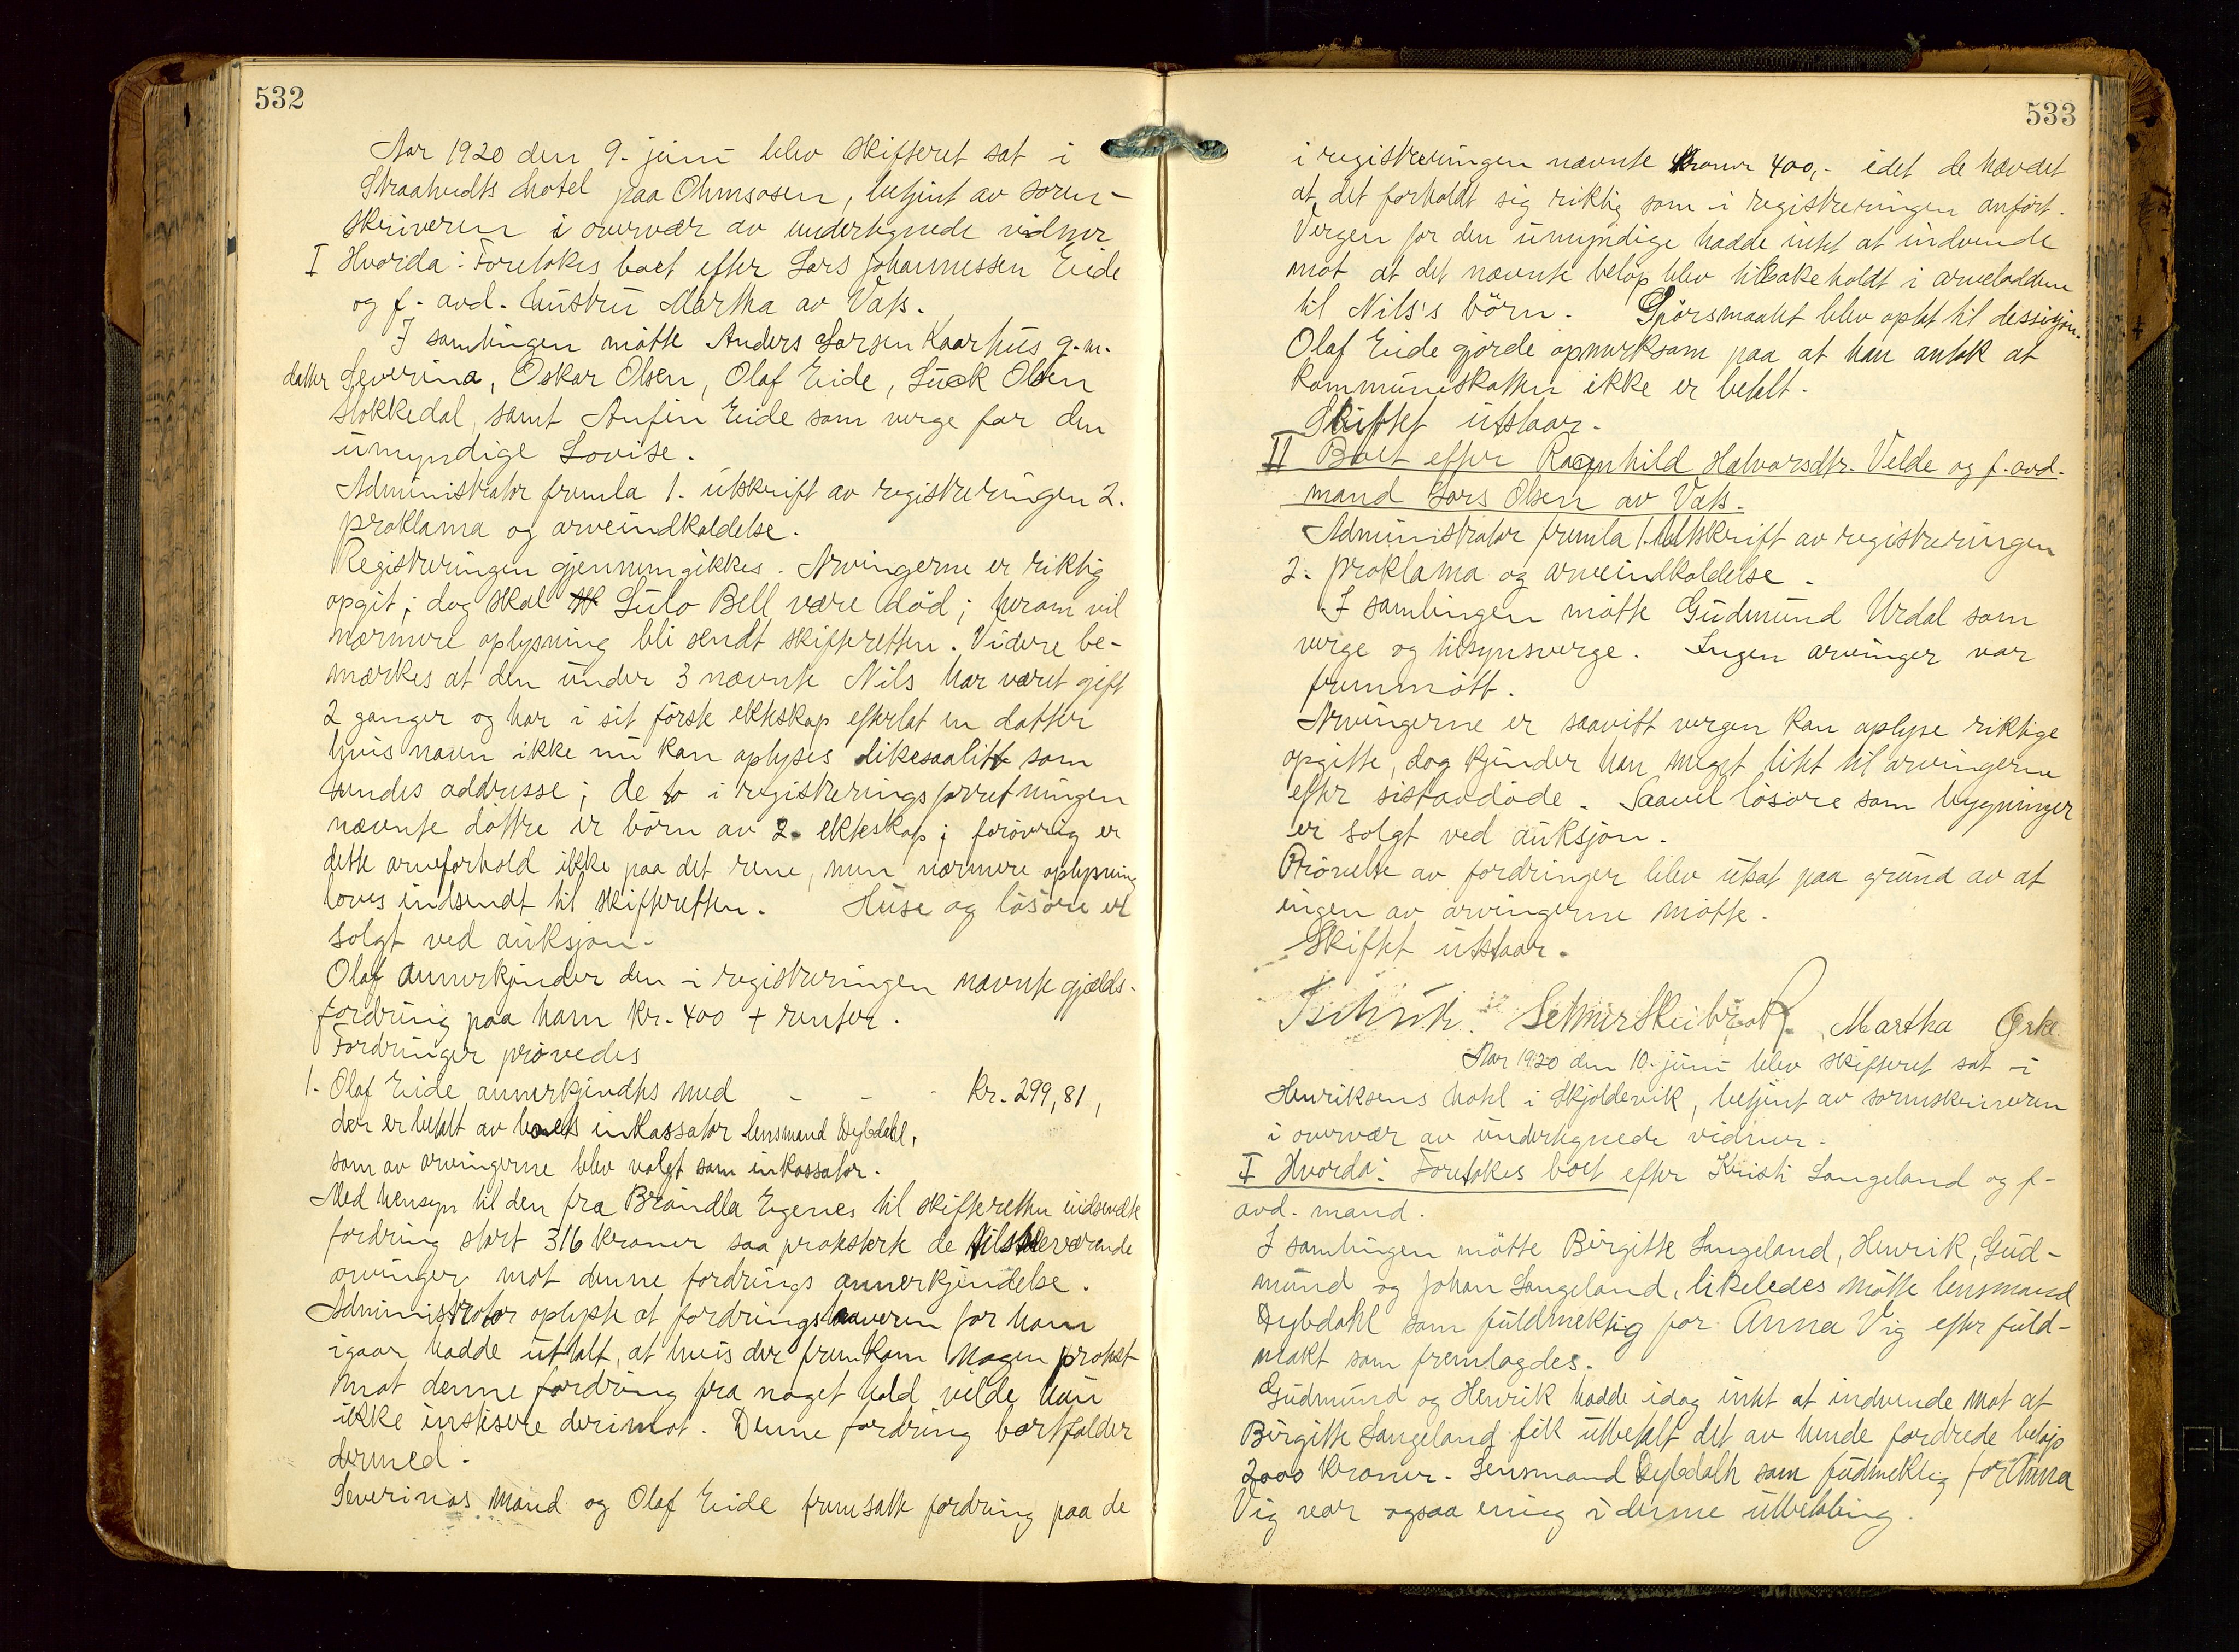 532
Aar 1920 den 9. juni blev skifteret sat i
hotel paa Ølensosen, betjent av soren-
skriveren i overvær av undertegnede vidner
I Hvorda: Foretokes boet efter Lars Johannessen Eide
og f. avd. hustru Martha av Vats.
I samlingen møtte Anders Larsen Kaarhus g. m.
datter Severina, Oskar Olsen, Olaf Eide, Olsen
Stokkedal, samt Anfin Eide som verge for den
umyndige Lovise.
Administrator fremla 1. utskrift av registreringen 2.
proklama og arveindkaldelse.
Registreringen gjennemgikkes. Arvingerne er riktig
opgit; dog skal Bell være død; herom vil
nærmere oplysning bli sendt skifteretten. Videre be-
merkes at den under 3 nævnte Nils har været gift
2 ganger og har i sit første ekteskap efterlat en datter
hvis navn ikke nu kan oplyses likesaalitt som
hendes addresse; de to i registreringsforretningen
nævnte døttre er børn av 2. ekteskap; forøvrig er
dette arveforhold ikke paa det rene, men nærmere oplysning
loves indsendt til skifteretten. Huse og løsøre er
solgt ved auksjon.
Olaf annerkjender den i registreringen nævnte gjælds-
fordring paa ham kr. 400 + renter.
Fordringer prøvedes
1. Olaf Eide annerkjendtes med - - - Kr. 299,81,
der er betalt av boets inkassator lensmand Dybdahl,
som av arvingerne blev valgt som inkassator.
Med hensyn til den fra Brøndla Egenes til skifteretten indsendte
fordring stort 316 kroner saa protesterte de tilstedeværende
arvinger mot denne fordrings annerkjendelse.
Administrator oplyste at fordringshaveren for ham
igaar hadde uttalt, at hvis der fremkom nogen protest
mot denne fordring fra noget hold vilde hun
ikke insistere derimot. Denne fordring bortfalder
dermed.
Severinas mand og Olaf Eide fremsatte fordring paa de
533
i registreringen nævnte kroner 400,- idet de hævdet
at det forholdt sig riktig som i registreringen anført.
Vergen for den umyndige hadde intet at indvende
mot at det nævnte beløp blev tilbakeholdt i arveloddene
til Nils's børn. Spørsmaalet blev optat til dessisjon.
Olaf Eide gjorde opmerksom paa at han antok at
kommuneskatten ikke er betalt.
Skiftet utstaar.
II Boet efter Ragnhild Halvorsdtr. Velde og f. avd.
mand Lars Olsen av Vats.
Administrator fremla 1. Utskrift av registreringen
2. proklama og arveindkaldelse.
I samlingen møtte Gudmund Urdal som
verge og tilsynsverge. Ingen arvinger var
fremmøtt.
Arvingerne er saavitt vergen kan oplyse riktige
opgitte, dog kjender han meget litet til arvingerne
efter sistavdøde. Saavel løsøre som bygninger
er solgt ved auksjon.
Prøvelse av fordringer blev utsat paa grund av at
ingen av arvingerne møtte.
Skiftet utstaar.
Martha
Aar 1920 den 10. juni blev skifteret sat i
Henriksens hotel i Skjoldevik, betjent av sorenskriveren
i overvær av undertegnede vidner.
I Hvorda: Foretokes boet efter Kristi Langeland og f-
avd. mand.
I samlingen møtte Birgitte Langeland, Henrik, Gud-
mund og Johan Langeland, likeledes møtte lensmand
Dybdahl som fuldmektig for Anna Vig efter fuld-
makt som fremlagdes.
Gudmund og Henrik hadde idag intet at indvende mot at
Birgitte Langeland fik utbetalt det av hende fordrede beløp
2000 kroner. Lensmand Dybdalh som fudmektig for Anna
Vig var ogsaa enig i denne utbetaling.